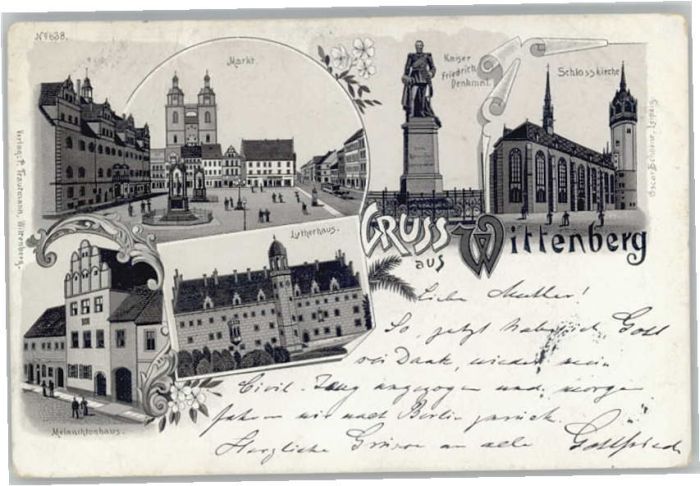 No 638.
Markt.
Kaiser
Friedrich
Denkmal.
Schlosskirche
Verlag: P. Trautmann, Wittenberg.
Oscar Schleich, Leipzig
Lutherhaus.
Melanchtonhaus.
GRUSS
aus
Wittenberg
Liebe Mutter!
So, jetzt habe ich Gott
sei Dank, wieder mein
Civil-Zeug angezogen und morgen
fahren wir nach Berlin zurück.
Herzliche Grüsse an alle Gottfried